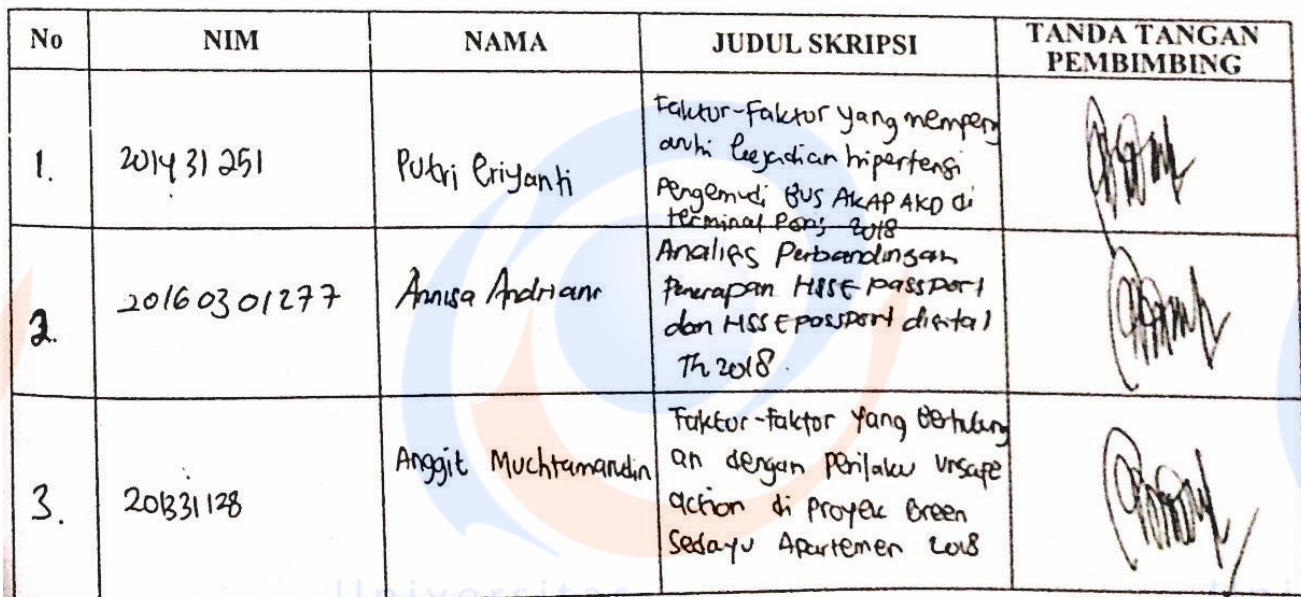 No NIM NAMA JUDUL SKRIPSI TANDA TANGAN
PEMBIMBING
1. 2014 31 251 Putri Eriyanti Faktor-Faktor yang mempeng
aruhi kejadian hipertensi
Pengemudi BUS AKAP AKD di
terminal Poris 2018
2. 20160301277 Annisa Andriani Analisis Perbandingan
Penerapan HSSE passport
dan HSSE passport digital
Th 2018.
3. 201331128 Anggit Muchtamarudin Faktor-faktor yang berhubung
an dengan perilaku unsafe
action di Proyek Green
Sedayu Apartemen 2018
Universitas
Uni